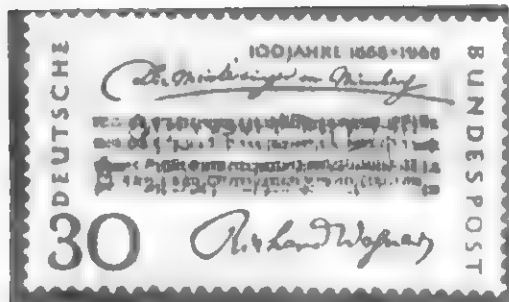 100 JAHRE 1868 · 1968
Die Meistersinger von Nürnberg
DEUTSCHE
BUNDESPOST
30
Richard Wagner